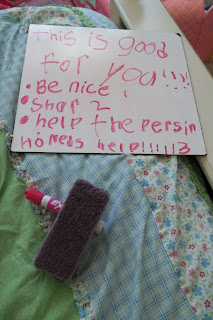 this is good
for you!!!!
• Be nice!
• Shar 2
• help the persin
ho neds help!!!!!3